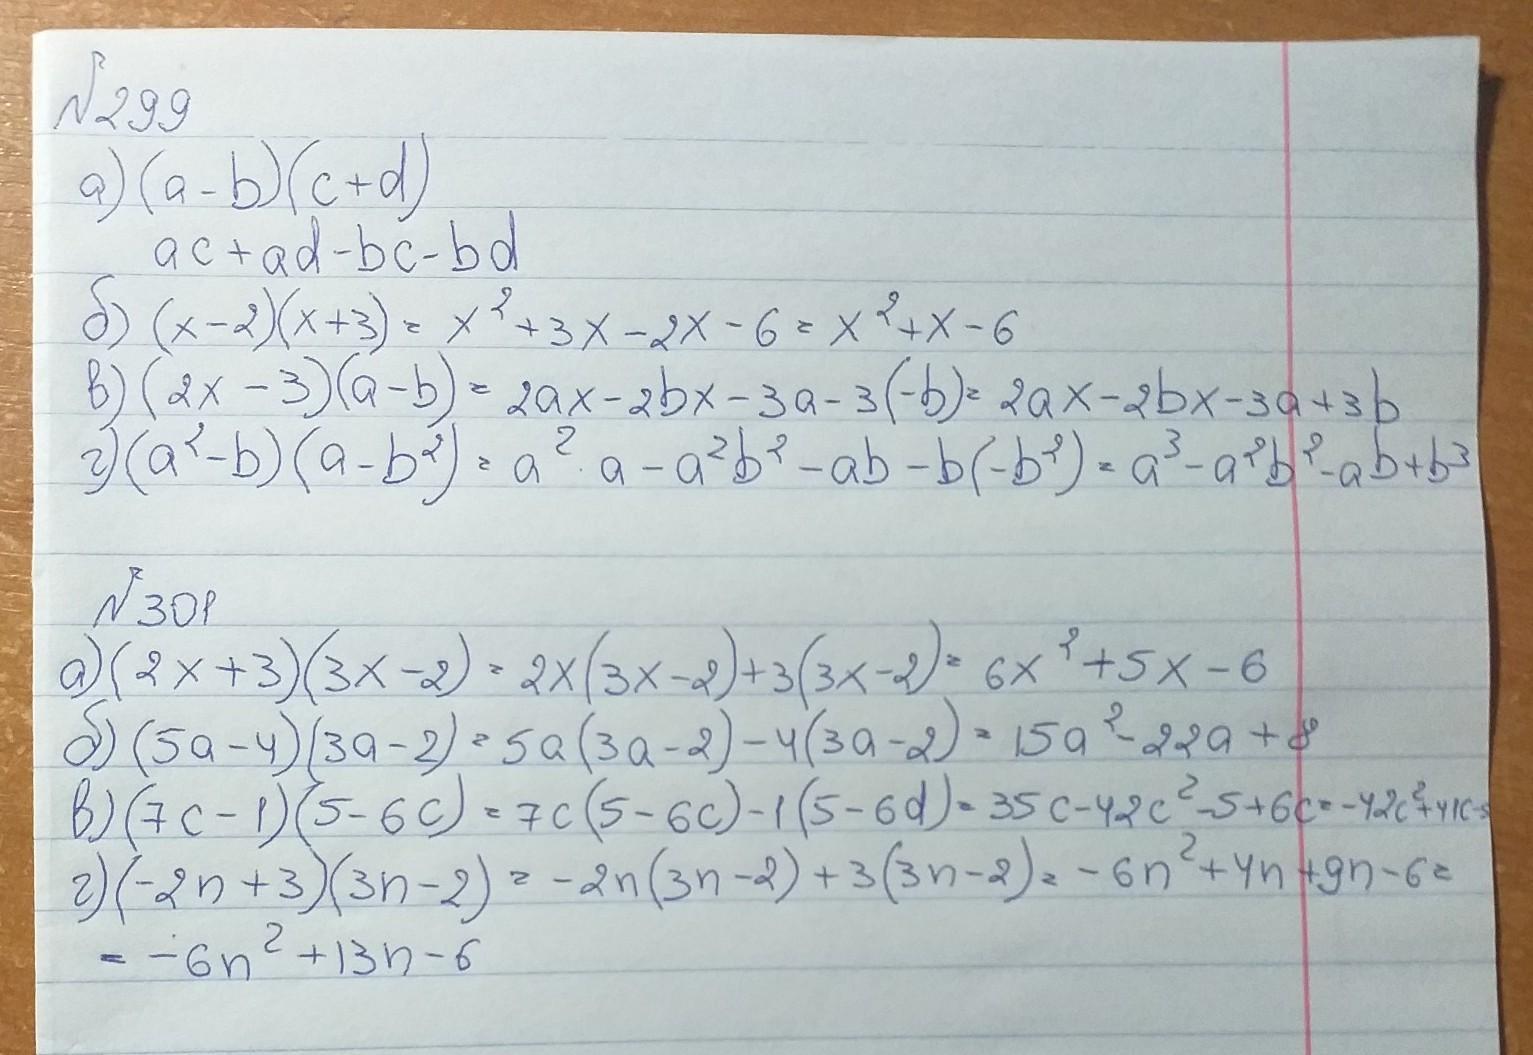 №299
а) (a-b)(c+d)
ac+ad-bc-bd
б) (x-2)(x+3) = x²+3x-2x-6 = x²+x-6
в) (2x-3)(a-b) = 2ax-2bx-3a-3(-b) = 2ax-2bx-3a+3b
г) (a²-b)(a-b²) = a²·a-a²b²-ab-b(-b²) = a³-a²b²-ab+b³
№301
а) (2x+3)(3x-2) = 2x(3x-2)+3(3x-2) = 6x²+5x-6
б) (5a-4)(3a-2) = 5a(3a-2)-4(3a-2) = 15a²-22a+8
в) (7c-1)(5-6c) = 7c(5-6c)-1(5-6d) = 35c-42c²-5+6c = -42c²+41c-5
г) (-2n+3)(3n-2) = -2n(3n-2)+3(3n-2) = -6n²+4n+9n-6 =
= -6n²+13n-6